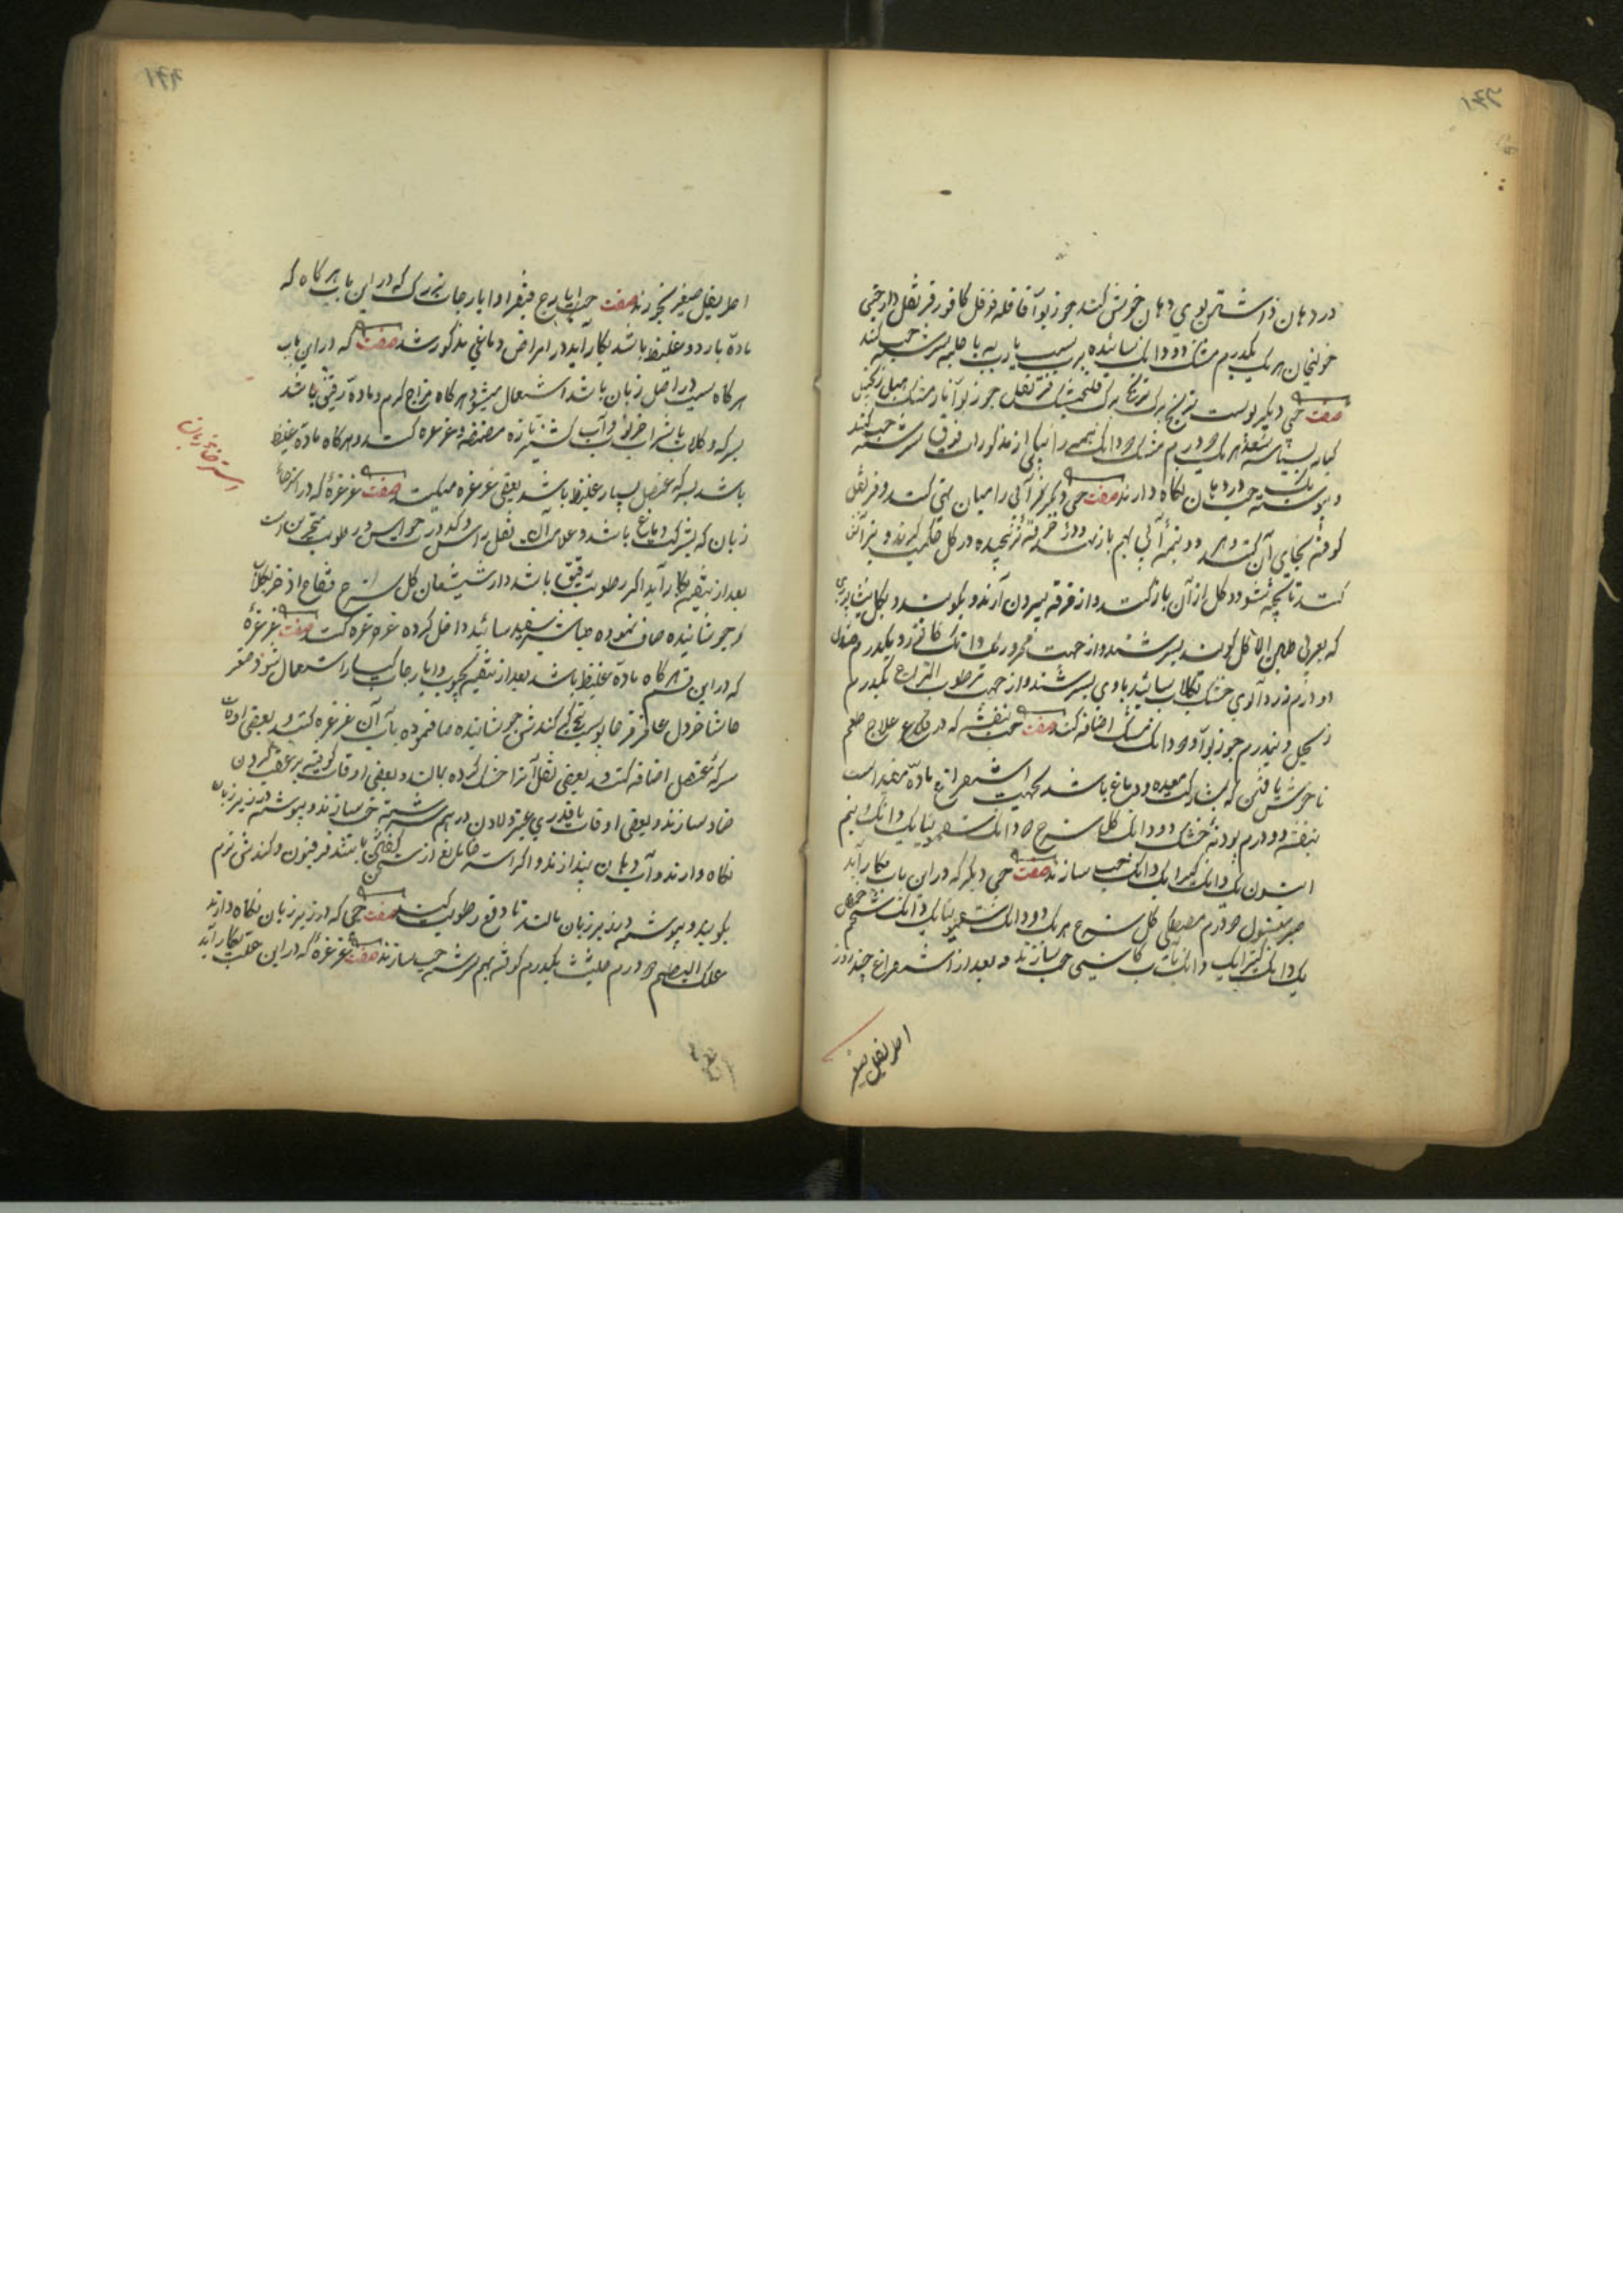 در دهان داشتن بوی دهان خوش کند جوز بوآ قاقله فوفل کافور قرنفل دارچینی
خولنجان هر یک یکدرم مشک دو دانک سائیده بر سیب یا به سرشته حب کنند
صفت حبی دیکر پوست ترنج برک ترنج برک فلنجمشک قرنفل جوز بوآ مشک هیل زنجبیل
کبابه بسباسه سعد هر یک درم مشک دانک از مذکوران فوق سرشته حب کنند
و پیوسته یک حب در دهان نکاه دارند صفت حبی دیکر آبی را میان تهی کنند و قرنفل
کوفته بجای آن کنند و هر دو نیمه آبی بهم باز نهند و در خرقه پیچیده در کل حکمت کیرند و بر آتش
کنند تا پخته شود و کل از آن باز کنند و از خرقه بیرون آرند و بکوبند و بکل نیشابوری
که بعربی طین الاکل کویند بسرشند و از جهت محرور یک دانک کافور و یکدرم صندل
دو درم زردآلوی خشک بکلاب سائیده باوی بسرشند و از جهت مرطوب المزاج یکدرم
زنجبیل و نیمدرم جوز بوآ و دانک مشک اضافه کنند صفت حب بنفشه که در علاج طعم
ناخوش یافتن که بمشارکت معده و دماغ باشد بجهت استفراغ ماده مفید است
بنفشه دو درم پودنهٔ خشک دو دانک کل سرخ دانک سقمونیا یک دانک و نیم
انیسون یک دانک کتیرا یک دانک حب سازند صفت حبی دیکر که در این باب بکار آید
صبر مغسول درم مصطکی کل سرخ هر یک دو دانک سقمونیا یک دانک شحم حنظل
یک دانک کتیرا یک دانک بآب کاسنی حب سازند و بعد از استفراغ چند روز
اطریفل صغیر
اطریفل صغیر بخورند صفت حب ایارج فیقرا و ایارجات بزرک که در این باب هرکاه که
مادهٔ بارد و غلیظ باشد بکار آید در امراض دماغی مذکور شد صفت که در این باب
هرکاه سبب در اصل زبان باشد استعمال میشود هرکاه مزاج کرم و ماده رقیق باشد
بسرکه و کلاب یا بشراب خرنوب و آب کشنیز تازه مضمضه و غرغره کنند و هرکاه ماده غلیظ
باشد بسرکه عنصل بسیار غلیظ باشد بعضی غرغره میکنند صفت غرغرهٔ که در استرخای
استرخای زبان
زبان که بشرکت دماغ باشد و علامت آن ثقل راس و کدورت حواس و رطوبت منخرین است
بعد از تنقیه بکار آید اکر رطوبت رقیق باشد دارشیشعان کل سرخ فقاح اذخر بکلاب
جوشانیده صاف نموده سائیده داخل کرده غرغره کنند صفت غرغرهٔ
که در این قسم هرکاه ماده غلیظ باشد بعد از تنقیه بحبوب و ایارجات کبار استعمال شود صعتر
حاشا خردل عاقرقرحا پوست بیخ کبر کندش جوشانیده صاف نموده بآب آن غرغره کنند و بعضی اوقات
سرکهٔ عنصل اضافه کنند و بعضی ثفل آنرا خشک کرده بمالند و بعضی اوقات کوفته بر عقب کردن
ضماد سازند و بعضی اوقات با قدری عنبر و لادن در هم سرشته حب سازند و پیوسته در زیر زبان
نکاه دارند و آب دهان بیندازند و اکر استرخا مانع از سخن کفتن باشد فرفیون و کندش نرم
بکوبند و پیوسته در زیر زبان مالند تا دفع رطوبت کند صفت حبی که در زیر زبان نکاه دارند
علک البطم درم حلتیت یکدرم کوفته بهم سرشته حب سازند صفت غرغرهٔ که در این علت بکار آید